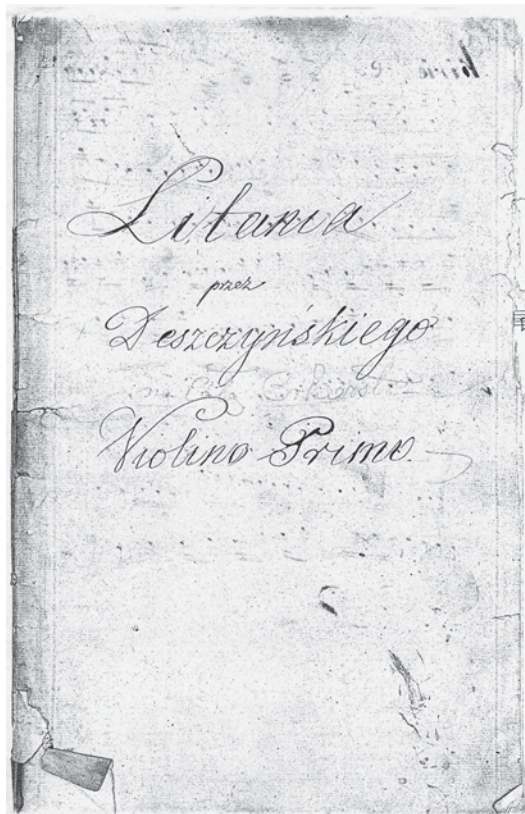 Litania
przez
Deszczyńskiego
Violino Primo